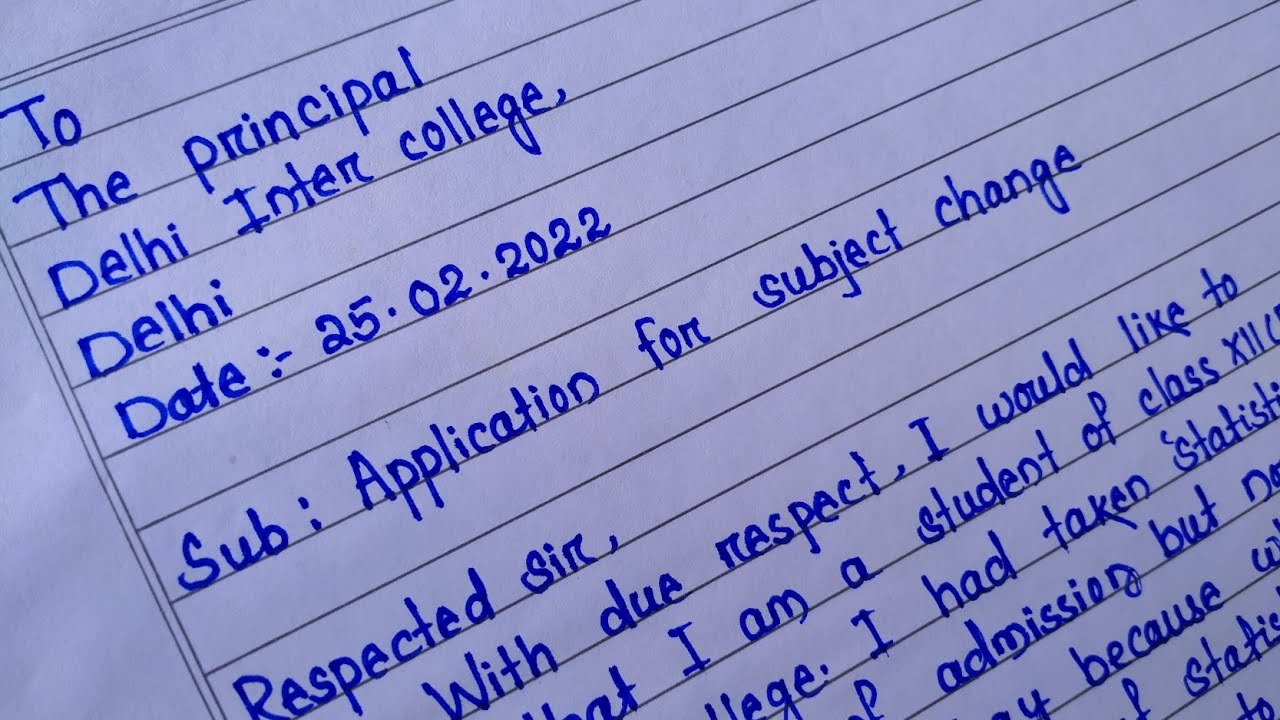 To
The principal
Delhi Inter college,
Delhi
Date :- 25.02.2022
Sub : Application for subject change
Respected sir,
With due respect, I would like to
that I am a student of class XII
college. I had taken 'statisti
of admission but
because
of statis
to